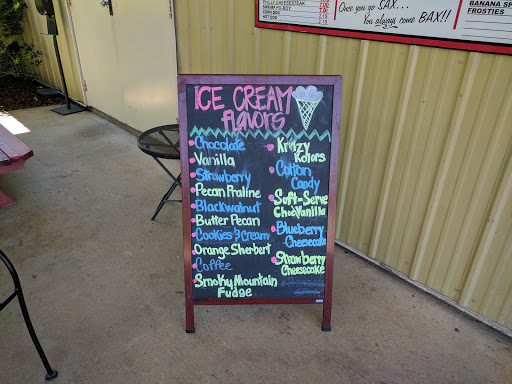 PHILLY CHEESESTEAK
SHRIMP PO-BOY
CORN DOG
HOT DOG
Once you go SAX...
You always come BAX!!
BANANA SP
FROSTIES
ICE CREAM
FLAVORS
Chocolate
Vanilla
Strawberry
Pecan Praline
Blackwalnut
Butter Pecan
Cookies & Cream
Orange Sherbert
Coffee
Smoky Mountain
Fudge
Krazy
Kolors
Cotton
Candy
Soft-Serve
Choc/Vanilla
Blueberry
Cheesecake
Strawberry
Cheesecake